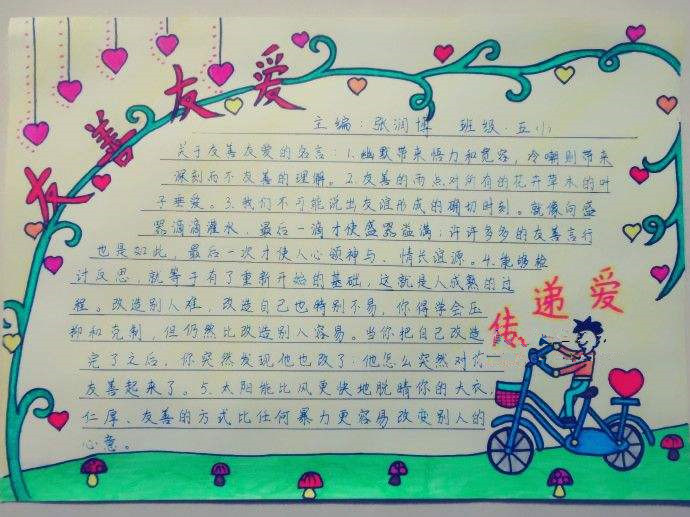 友善友爱
主编：张润博 班级：五(1)
关于友善友爱的名言：1.幽默带来悟力和宽容，冷嘲则带来
深刻而不友善的理解。2.友善的雨点对所有的花卉草木的叶
子垂爱。3.我们不可能说出友谊形成的确切时刻。就像向盛
器滴滴灌水，最后一滴才使盛器溢满；许许多多的友善言行
也是如此，最后一次才使人心领神与、情长谊源。4.能够检
讨反思，就等于有了重新开始的基础，这就是人成熟的过
程。改造别人难，改造自己也特别不易，你得学会压
抑和克制，但仍然比改造别人容易。当你把自己改造
完了之后，你突然发现他也改了：他怎么突然对你
友善起来了。5.太阳能比风更快地脱睛你的大衣，
仁厚、友善的方式比任何暴力更容易改变别人的
心意。
传递爱